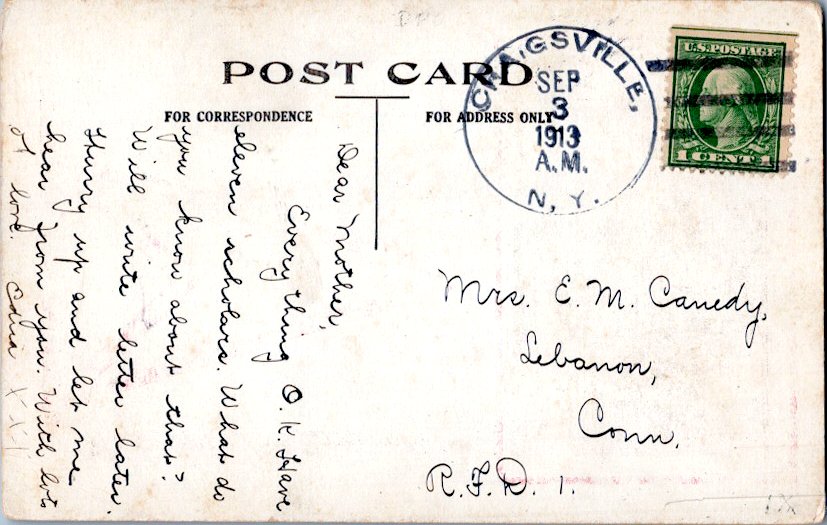 POST CARD
FOR CORRESPONDENCE
FOR ADDRESS ONLY
CRAIGSVILLE,
SEP
3
1913
A.M.
N.Y.
U.S. POSTAGE
1 CENT 1
Dear Mother,
Everything O.K. Have
eleven scholars. What do
you know about that?
Will write letter later.
Hurry up and let me
hear from you. With lots
of love. Edna X X X
Mrs. E. M. Canedy,
Lebanon,
Conn.
R.F.D. 1.